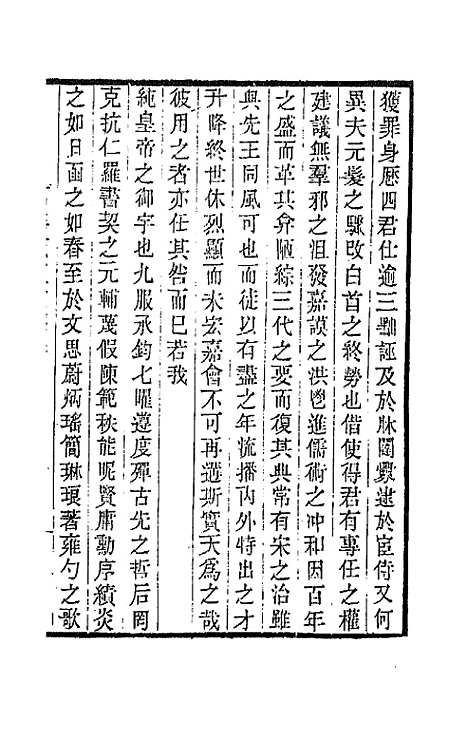 獲罪身歷四君仕逾三黜誣及於牀闥釁逮於臣侍又何
異夫元髮之驟改白首之終勞也偕使得君有專任之權
建議無羣邪之沮發嘉謨之洪鬯進儒術之沖和因百年
之盛而革其弇陋綜三代之要而復其典常有宋之治雖
與先王同風可也而徒以有盡之年流播內外特出之才
升降終世休烈顯而未宏嘉會不可再遘斯實天為之哉
彼用之者亦任其咎而已若我
純皇帝之御宇也九服承鈞七曜遵度殫古先之哲后罔
克抗仁羅書契之元輔蔑假陳範秩能昵賢庸勳序績炎
之如日畵之如春至於文思蔚炳瑤簡琳琅著雍勺之歌